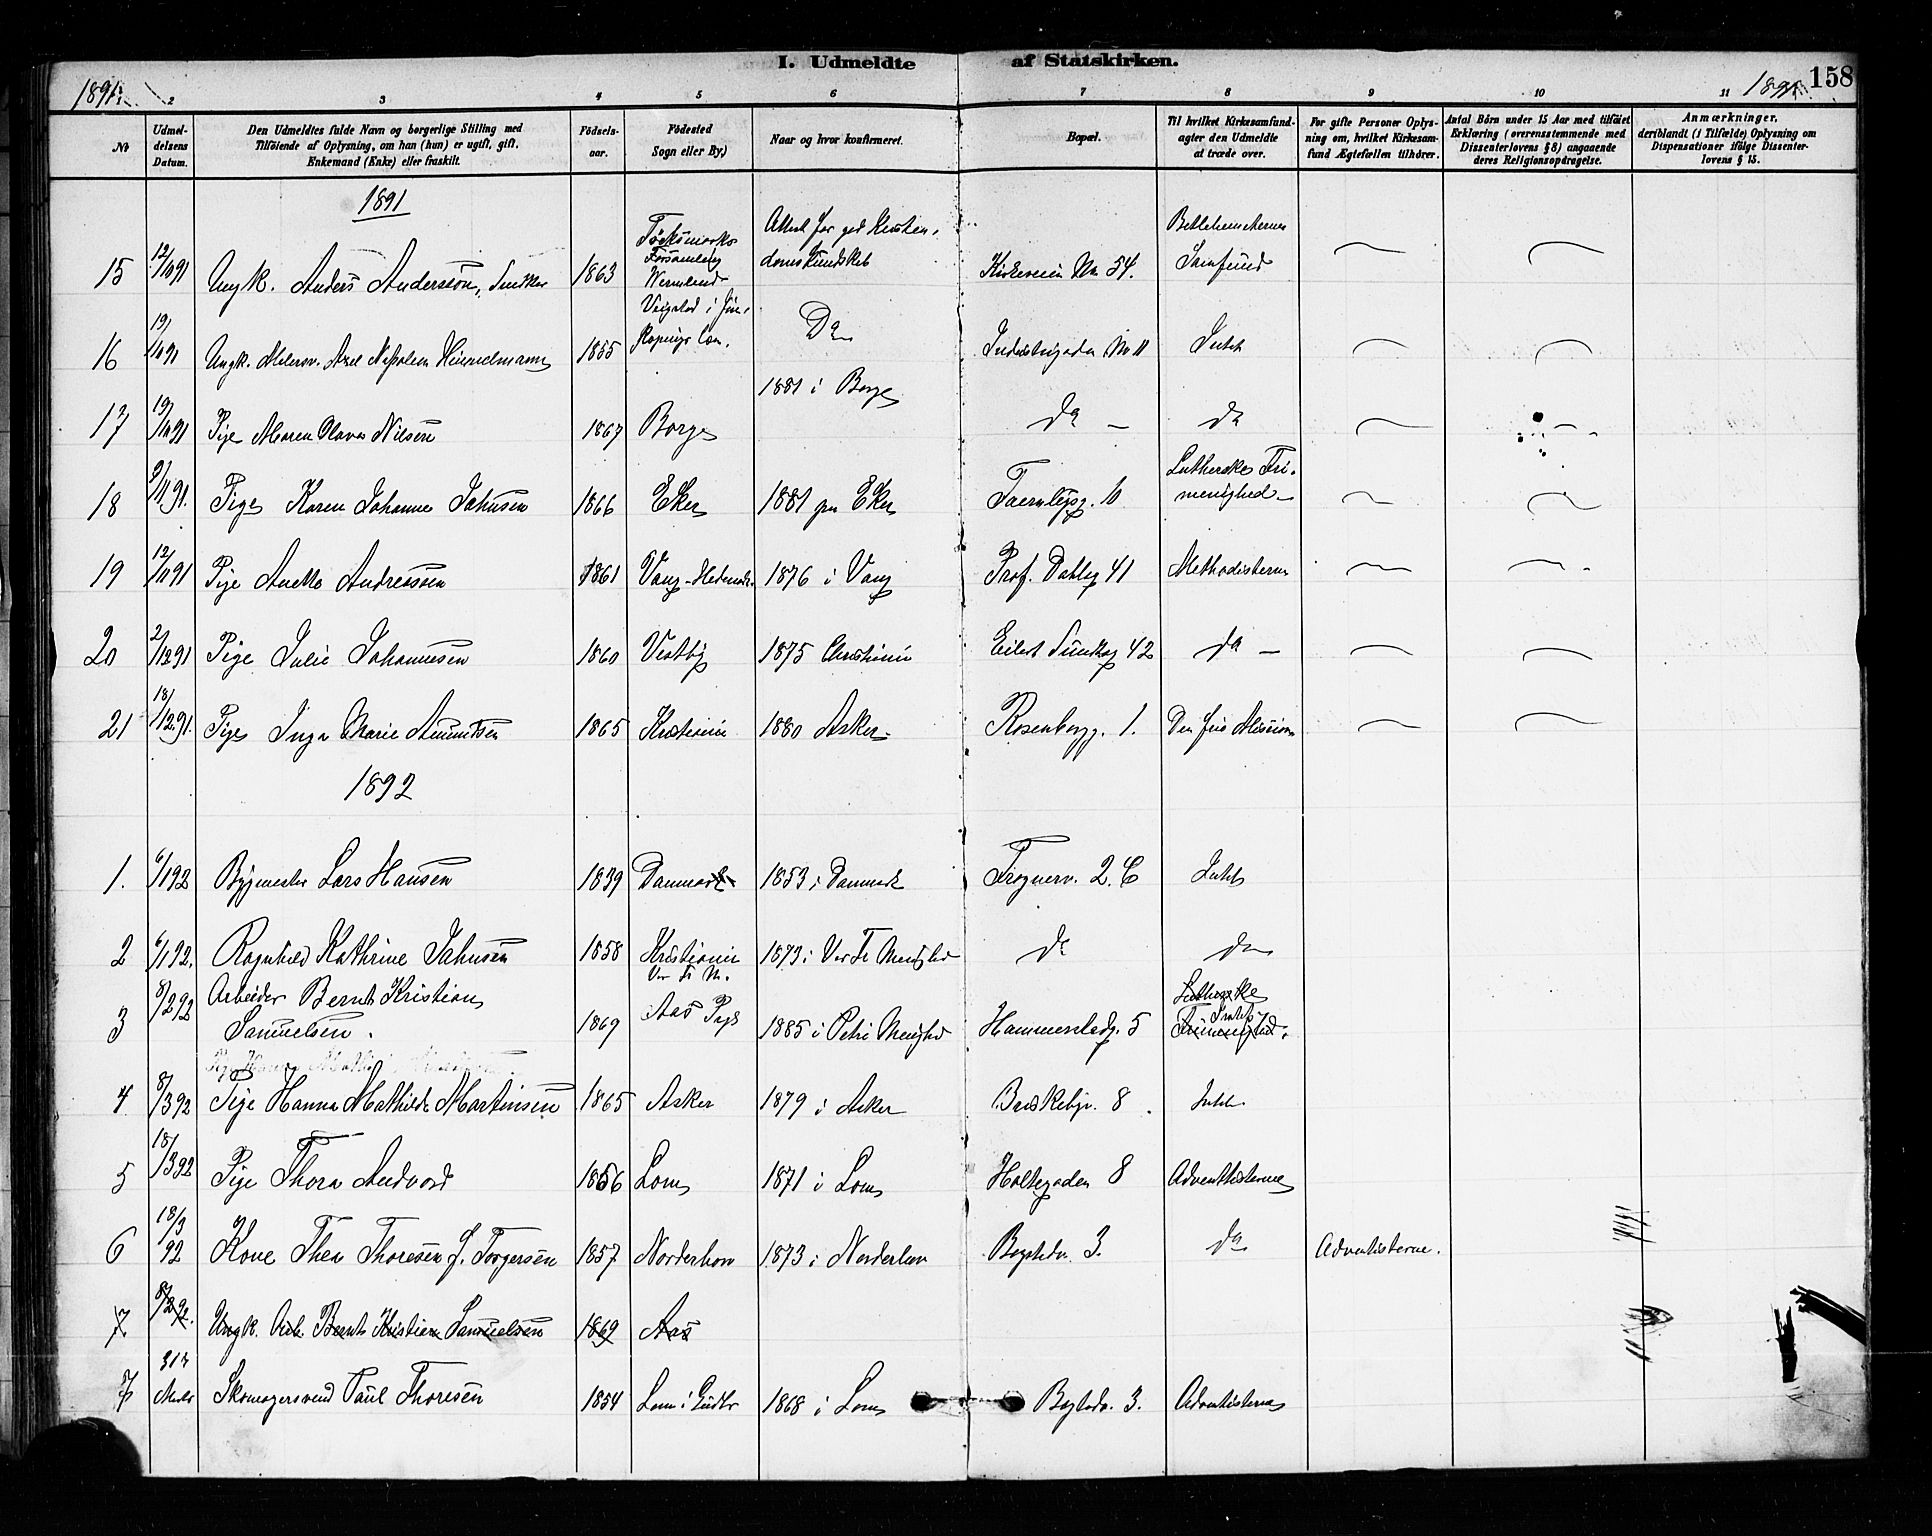 I. Udmeldte af Statskirken.
1891. 1891. 158
1 2 3 4 5 6 7 8 9 10 11
No
Udmel-
delsens
Datum.
Den Udmeldtes fulde Navn og borgerlige Stilling med
Tilföiende af Oplysning, om han (hun) er ugift, gift,
Enkemand (Enke) eller fraskilt.
Födsels-
aar.
Födested
Sogn eller By.)
Naar og hvor konfirmeret.
Bopæl.
Til hvilket Kirkesamfund-
agter den Udmeldte
at træde over.
For gifte Personer Oplys-
ning om, hvilket Kirkesam-
fund Ægtefællen tilhörer.
Antal Börn under 15 Aar med tilföiet
Erklæring (overensstemmende med
Dissenterlovens § 8) angaaende
deres Religionsopdragelse.
Anmærkninger,
deriblandt (i Tilfælde) Oplysning om
Dispensationer ifölge Dissenter-
lovens § 15.
1891
15 12/10 91 Ungk. Anders Andersson, Snedker 1863 Töcksmarks Forsamling Wermland Attest for god Kristendomskundskab Kirkeveien No 54. Bethlehemiternes Samfund
16 19/10 91 Ungk. Malersv. Axel Napoleon Himmelmann 1855 Da Industrigaden No 11 Intet
17 19/10 91 Pige Maren Olava Nilsen 1867 Borge 1881 i Borge da - da
18 9/11 91. Pige Karen Johanne Jahnsen 1866 Eker 1881 paa Eker 10 Lutherske Frimenighed
19 12/11 91 Pige Anette Andreassen 1861 Vang Hedemark. 1876 i Vang Prof. Dahlsg 41 Methodisterne
20 2/12 91 Pige Julie Johannesen 1860 Vestby 1875 Christiania Eilert Sundtsg 42 da -
21 18/12 91. Pige Inga Marie Amundsen 1865 Kristiania 1880 Asker Rosenborgg. 1. Den frie Mission
1892
1. 6/1 92 Bygmester Lars Hansen 1839 Danmark 1853 i Danmark Frognerv. 2.C Intet
2 6/1 92. Ragnhild Kathrine Jahnsen 1858 Kristiania Vor Fr M. 1873 i Vor Fr Menighed da da
3 8/2 92 Arbeider Bernt Kristian Samuelsen. 1869 Aas Pgd 1885 i Petri Menighed Hammerstadg. 5 Lutherske Frimenighed. Intet
4 8/3 92 Pige Hanna Mathilde Martinsen 1865 Asker 1879 i Asker Briskebyv. 8. Intet
5 18/3 92 Pige Thora Andvord 1856 Lom 1871 i Lom Holtegaden 8 Adventisterne
6 18/3 92 Kone Thea Thoresen f. Torgersen 1857 Norderhov 1873 i Norderhov Bogstdv. 3. da Adventisterne.
7 8/2 92. Ungk. Arb. Bernt Kristian Samuelsen 1869 Aas
7 31te Marts Skomagersvend Paul Thoresen 1854 Lom i Gudbr 1868 i Lom Bogstdv. 3. Adventisterne